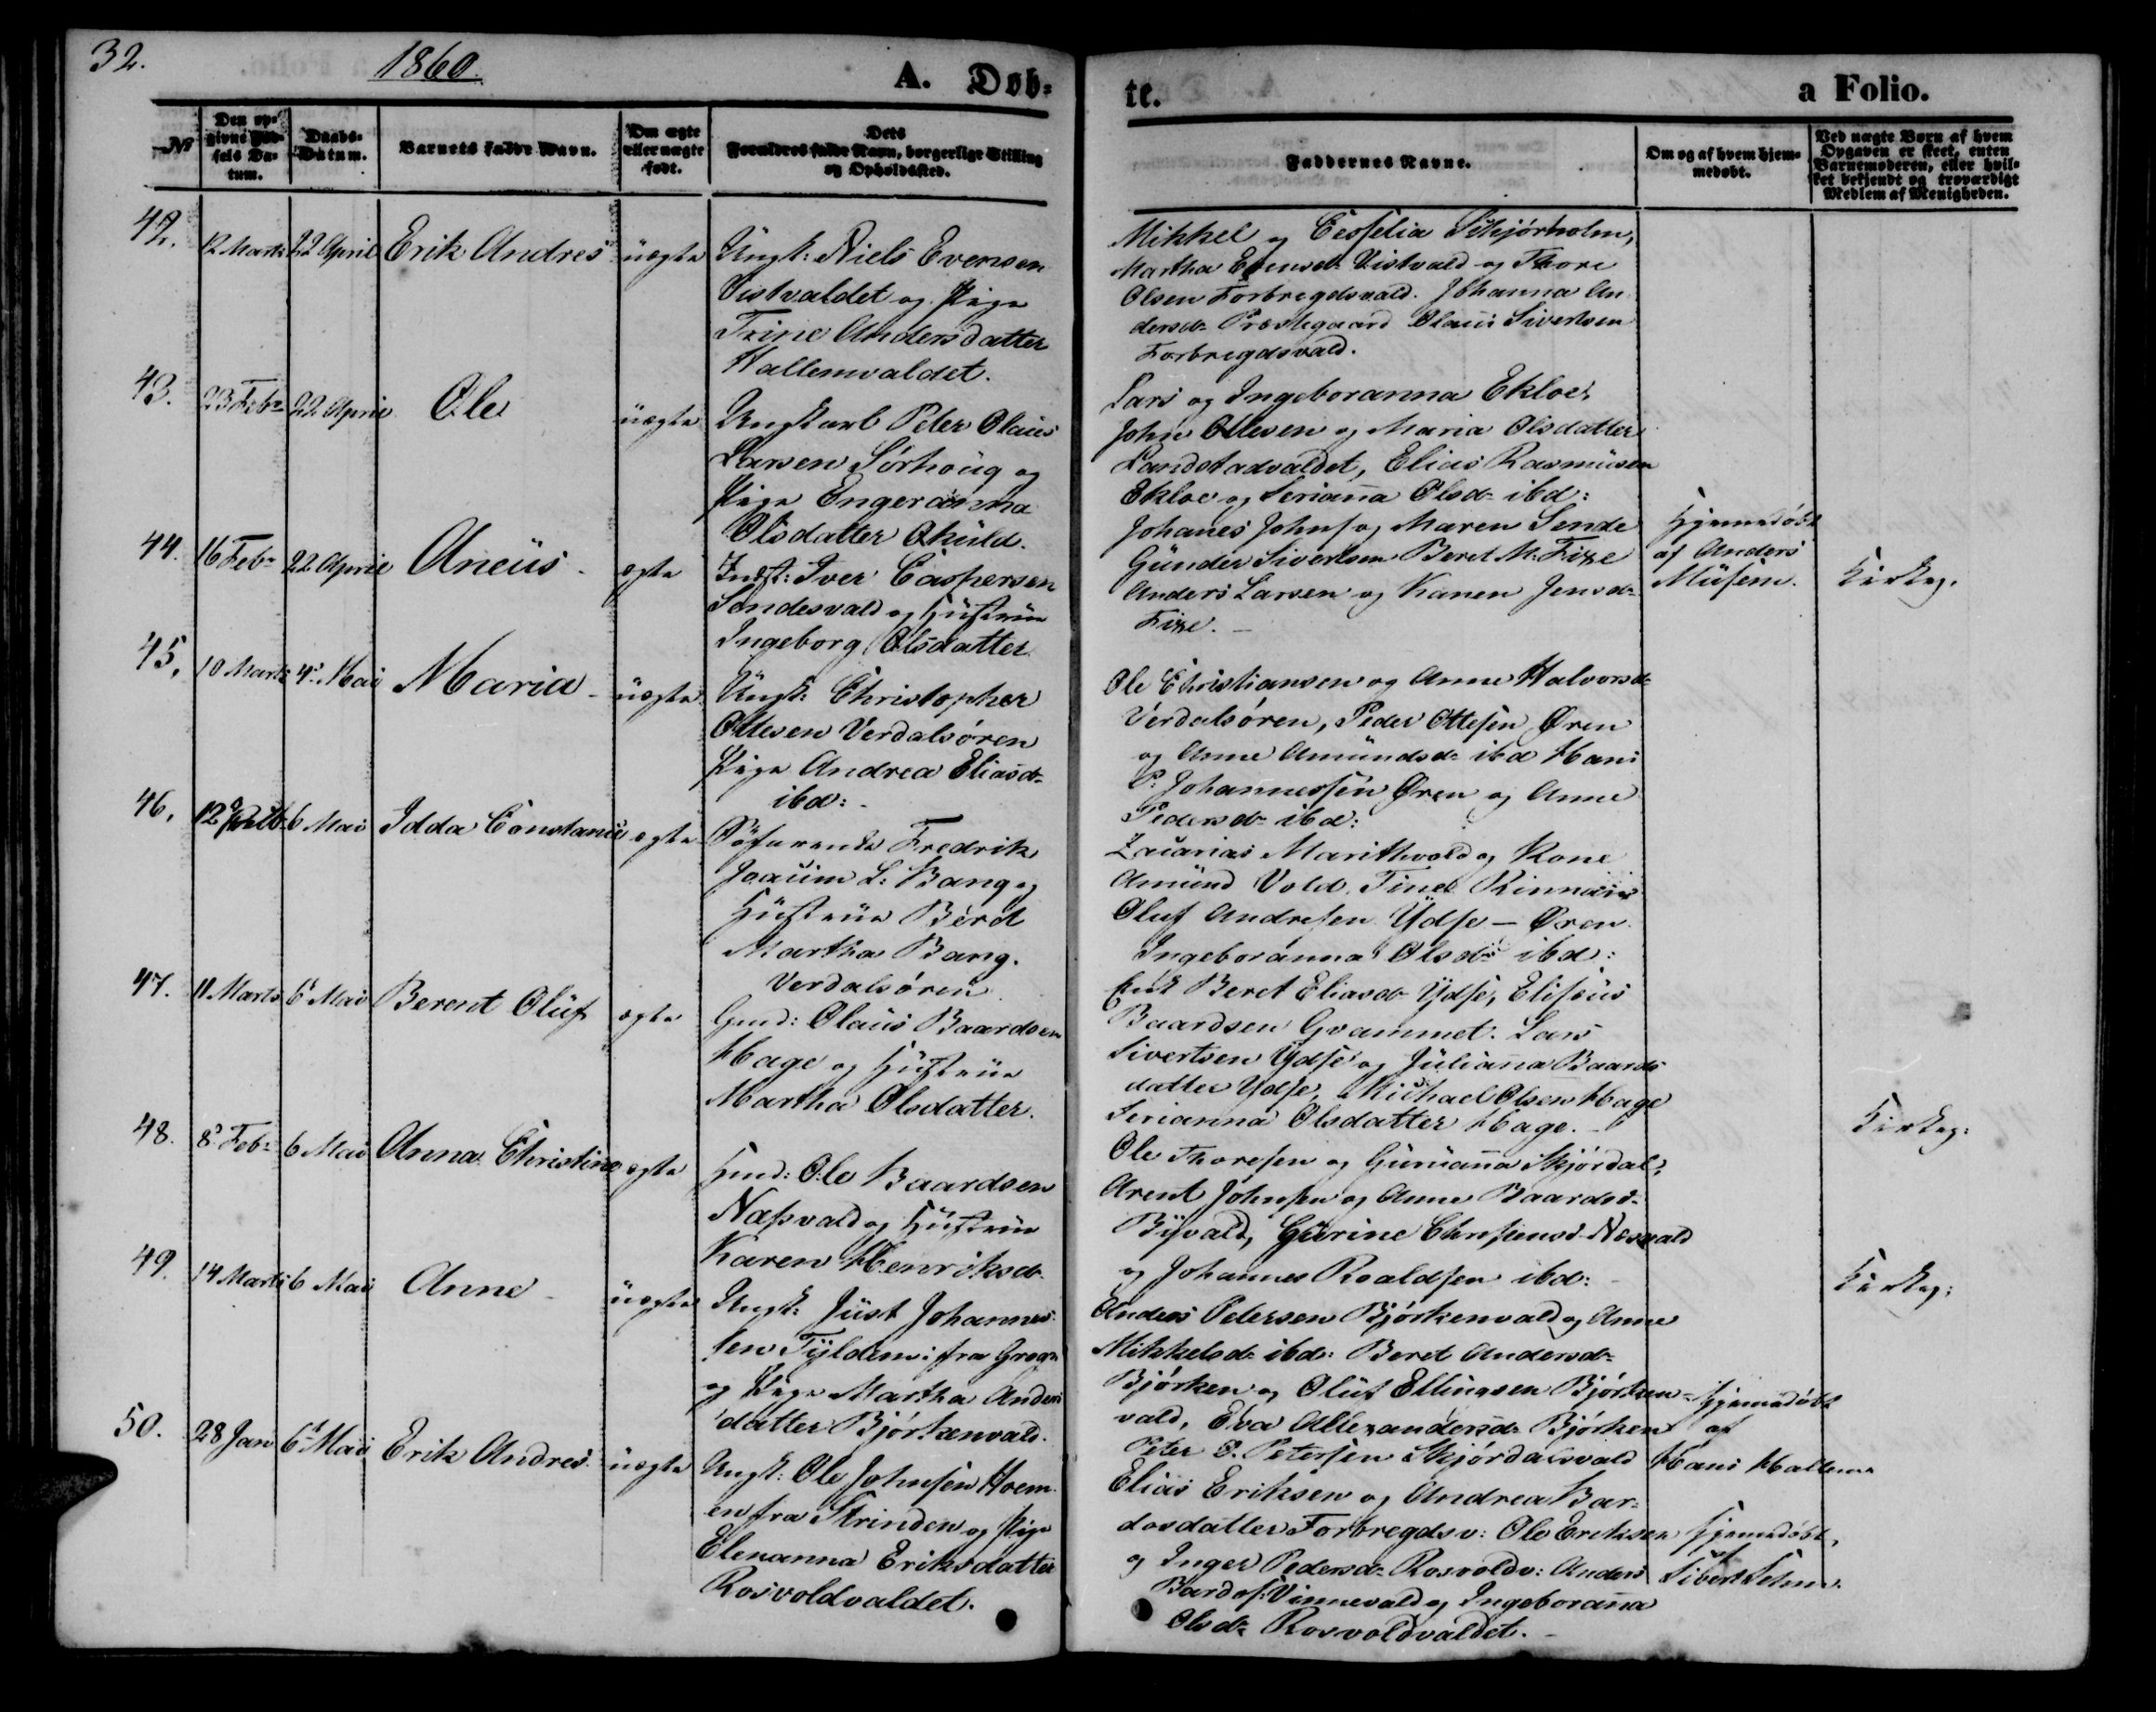 32.
1860.
A. Døb-
te.
a Folio.
No
Den op-
givne Fød-
sels Da-
tum.
Daabs-
Datum.
Barnets fulde Navn.
Om ægte
eller uægte
født.
Dets
Forældres fulde Navn, borgerlige Stilling
og Opholdssted.
Faddernes Navne.
Om og af hvem hjem-
medøbt.
Ved uægte Børn af hvem
Opgaven er skeet, enten
Barnemoderen, eller hvil-
ket bekjendt og troværdigt
Medlem af Menigheden.
42.
12 Marts
22 April
Erik Andres
uægte
Ungk: Niels Evensen
Vistvaldet og Pige
Trine Andersdatter
Hallemvaldet.
Mikkel og Cesselia Skjørholm,
Martha Evensd: Vistvald og Thore
Olsen Forbregdsvald. Johanna An
dersd: Præstegaard Olaus Sivertsen
Forbregdsvald.
43.
23 Feb:
22 April
Ole
uægte
Ungkarl Peter Olaus
Larsen Sørhoug og
Pige Engeranna
Olsdatter Okuld.
Lars og Ingeboranna Ekloe,
John Ottesen og Maria Olsdatter
Landstadvaldet, Elias Rasmusen
Ekloe og Serianna Olsd: ibd:
44.
16 Feb:
22 April
Aneus -
egte
Indst: Iver Caspersen
Sendesvald og Hustrue
Ingeborg Olsdatter
Johanes Johns: og Maren Sende
Gunder Sivertsen Beret M: Fixe
Anders Larsen og Karen Jensd:
Fixe. -
Hjemmedøbt
af Anders
Musem.
Kirkeg.
45.
10 Marts
4de Mai
Maria -
uægte
Ungk: Christopher
Ottesen Verdalsøren
Pige Andrea Eliasd:
ibd: -
Ole Christiansen og Anne Halvorsd:
Verdalsøren, Peder Ottesen Øren
og Anne Amundsd: ibd Hans
P. Johannessen Øren og Anne
Pedersd: ibd:
46.
6 Mai
Idda Constance
egte
Søfarende Fredrik
Joacim L: Bang og
Hustrue Beret
Martha Bang.
Verdalsøren
Zacarias Maritvold og Kone
Amund Vold. Tine Rinnan
Oluf Andresen Ydse - Øren
Ingeboranna Olsd: ibd:
47.
11 Marts
6 Mai
Berent Oluf
egte
Gmd: Olaus Baardsen
Hage og Hustrue
Martha Olsdatter.
Beret Eliasd: Ydse, Eliseus
Baardsen Gvammet. Lars
Sivertsen Ydse og Julianna Baards
datter Ydse, Michael Olsen Hage
Serianna Olsdatter Hage. -
48.
8 Feb:
6 Mai
Anna Christine
egte
Hmd: Ole Baardsen
Næsvald og Hustrue
Karen Henriksd:
Ole Thoresen og Gurianna Skjørdal,
Arent Johnsen og Anne Baardsd:
Byvald, Gurine Chrestensd: Næsvald
og Johannes Roaldsen ibd:
Kirkeg:
49.
14 Marts
6 Mai
Anne -
uægte
Ungk: Just Johannes
sen Tyldem: fra Grog:
og Pige Martha Anders
datter Bjørkenvald.
Anders Petersen Bjørkenvald og Anne
Mikkelsd: ibd: Beret Andersd:
Bjørken og Oluf Ellingsen Bjørken-
vald, Eva Allexandersd: Bjørken
Peter P. Petersen Skjørdalsvald
Hjemmedøbt
af
Hans Hallem
Kirkeg:
50.
28 Jan
6 Mai
Erik Andres
uægte
Ungk: Ole Johnsen Hoem
en fra Strinden og Pige
Elenanna Eriksdatter
Rosvoldvaldet.
Elias Eriksen og Andrea Bar-
dosdatter Forbregdsv: Ole Eriksen
og Inger Pedersd: Rosvoldv: Anders
Bards: Vinnevald og Ingeboranna
Olsd: Rosvoldvaldet. -
Hjemmedøbt,
af